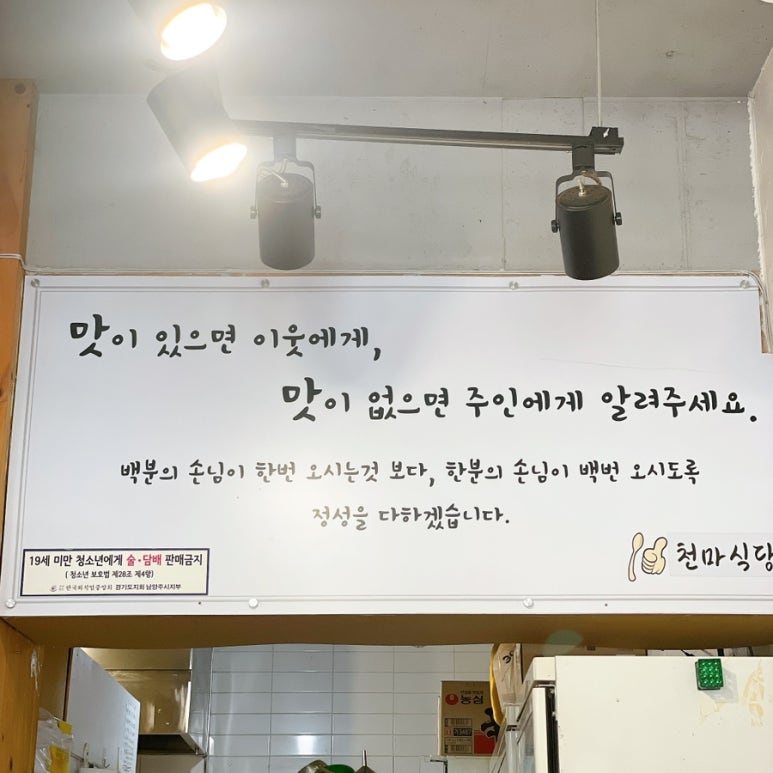 맛이 있으면 이웃에게,
맛이 없으면 주인에게 알려주세요.
백분의 손님이 한번 오시는것 보다, 한분의 손님이 백번 오시도록
정성을 다하겠습니다.
천마식당
19세 미만 청소년에게 술·담배 판매금지
( 청소년 보호법 제28조 제4항)
한국외식업중앙회 경기도지회 남양주시지부
농심